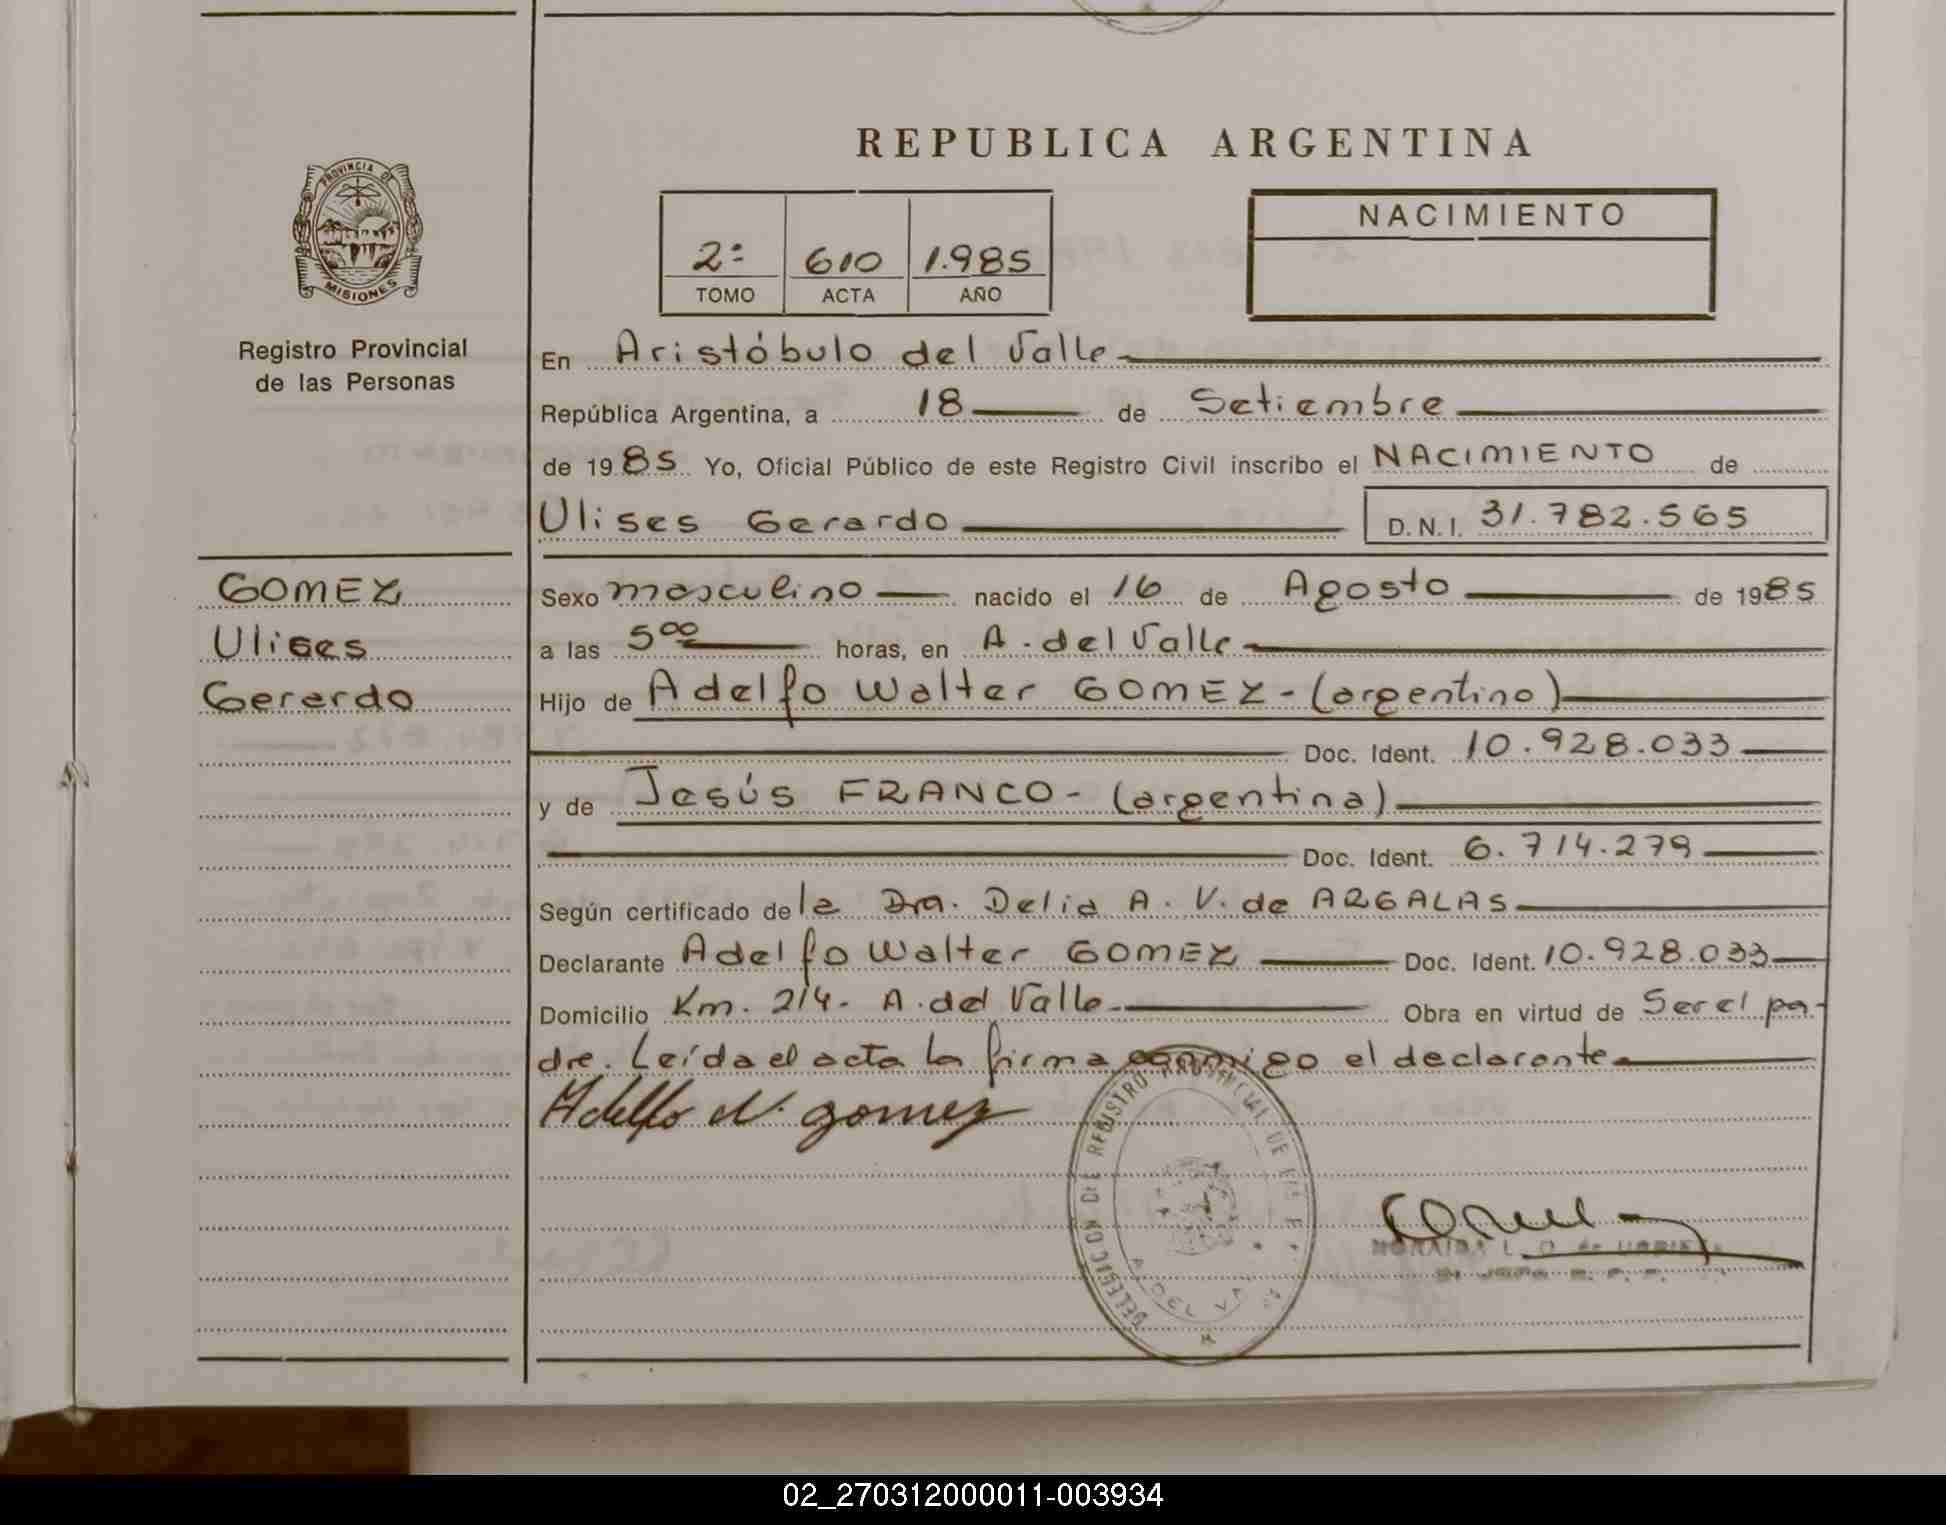 REPUBLICA ARGENTINA
PROVINCIA DE
MISIONES
Registro Provincial
de las Personas
2º 610 1.985
TOMO ACTA AÑO
NACIMIENTO
En Aristóbulo del Valle
República Argentina, a 18 de Setiembre
de 1985 Yo, Oficial Público de este Registro Civil inscribo el NACIMIENTO de
Ulises Gerardo D.N.I. 31.782.565
GOMEZ
Ulises
Gerardo
Sexo masculino nacido el 16 de Agosto de 1985
a las 5 00 horas, en A. del Valle
Hijo de Adelfo Walter GOMEZ - (argentino)
Doc. Ident. 10.928.033
y de Jesús FRANCO - (argentina)
Doc. Ident. 6.714.279
Según certificado de la Dra. Delia A. V. de ARGALAS
Declarante Adelfo Walter GOMEZ Doc. Ident. 10.928.033
Domicilio Km. 214 - A. del Valle Obra en virtud de Ser el pa-
dre. Leída el acta la firma conmigo el declarante
Adelfo W. gomez
DELEGACION DEL REGISTRO PROVINCIAL DE
A. DEL VA
02_270312000011-003934